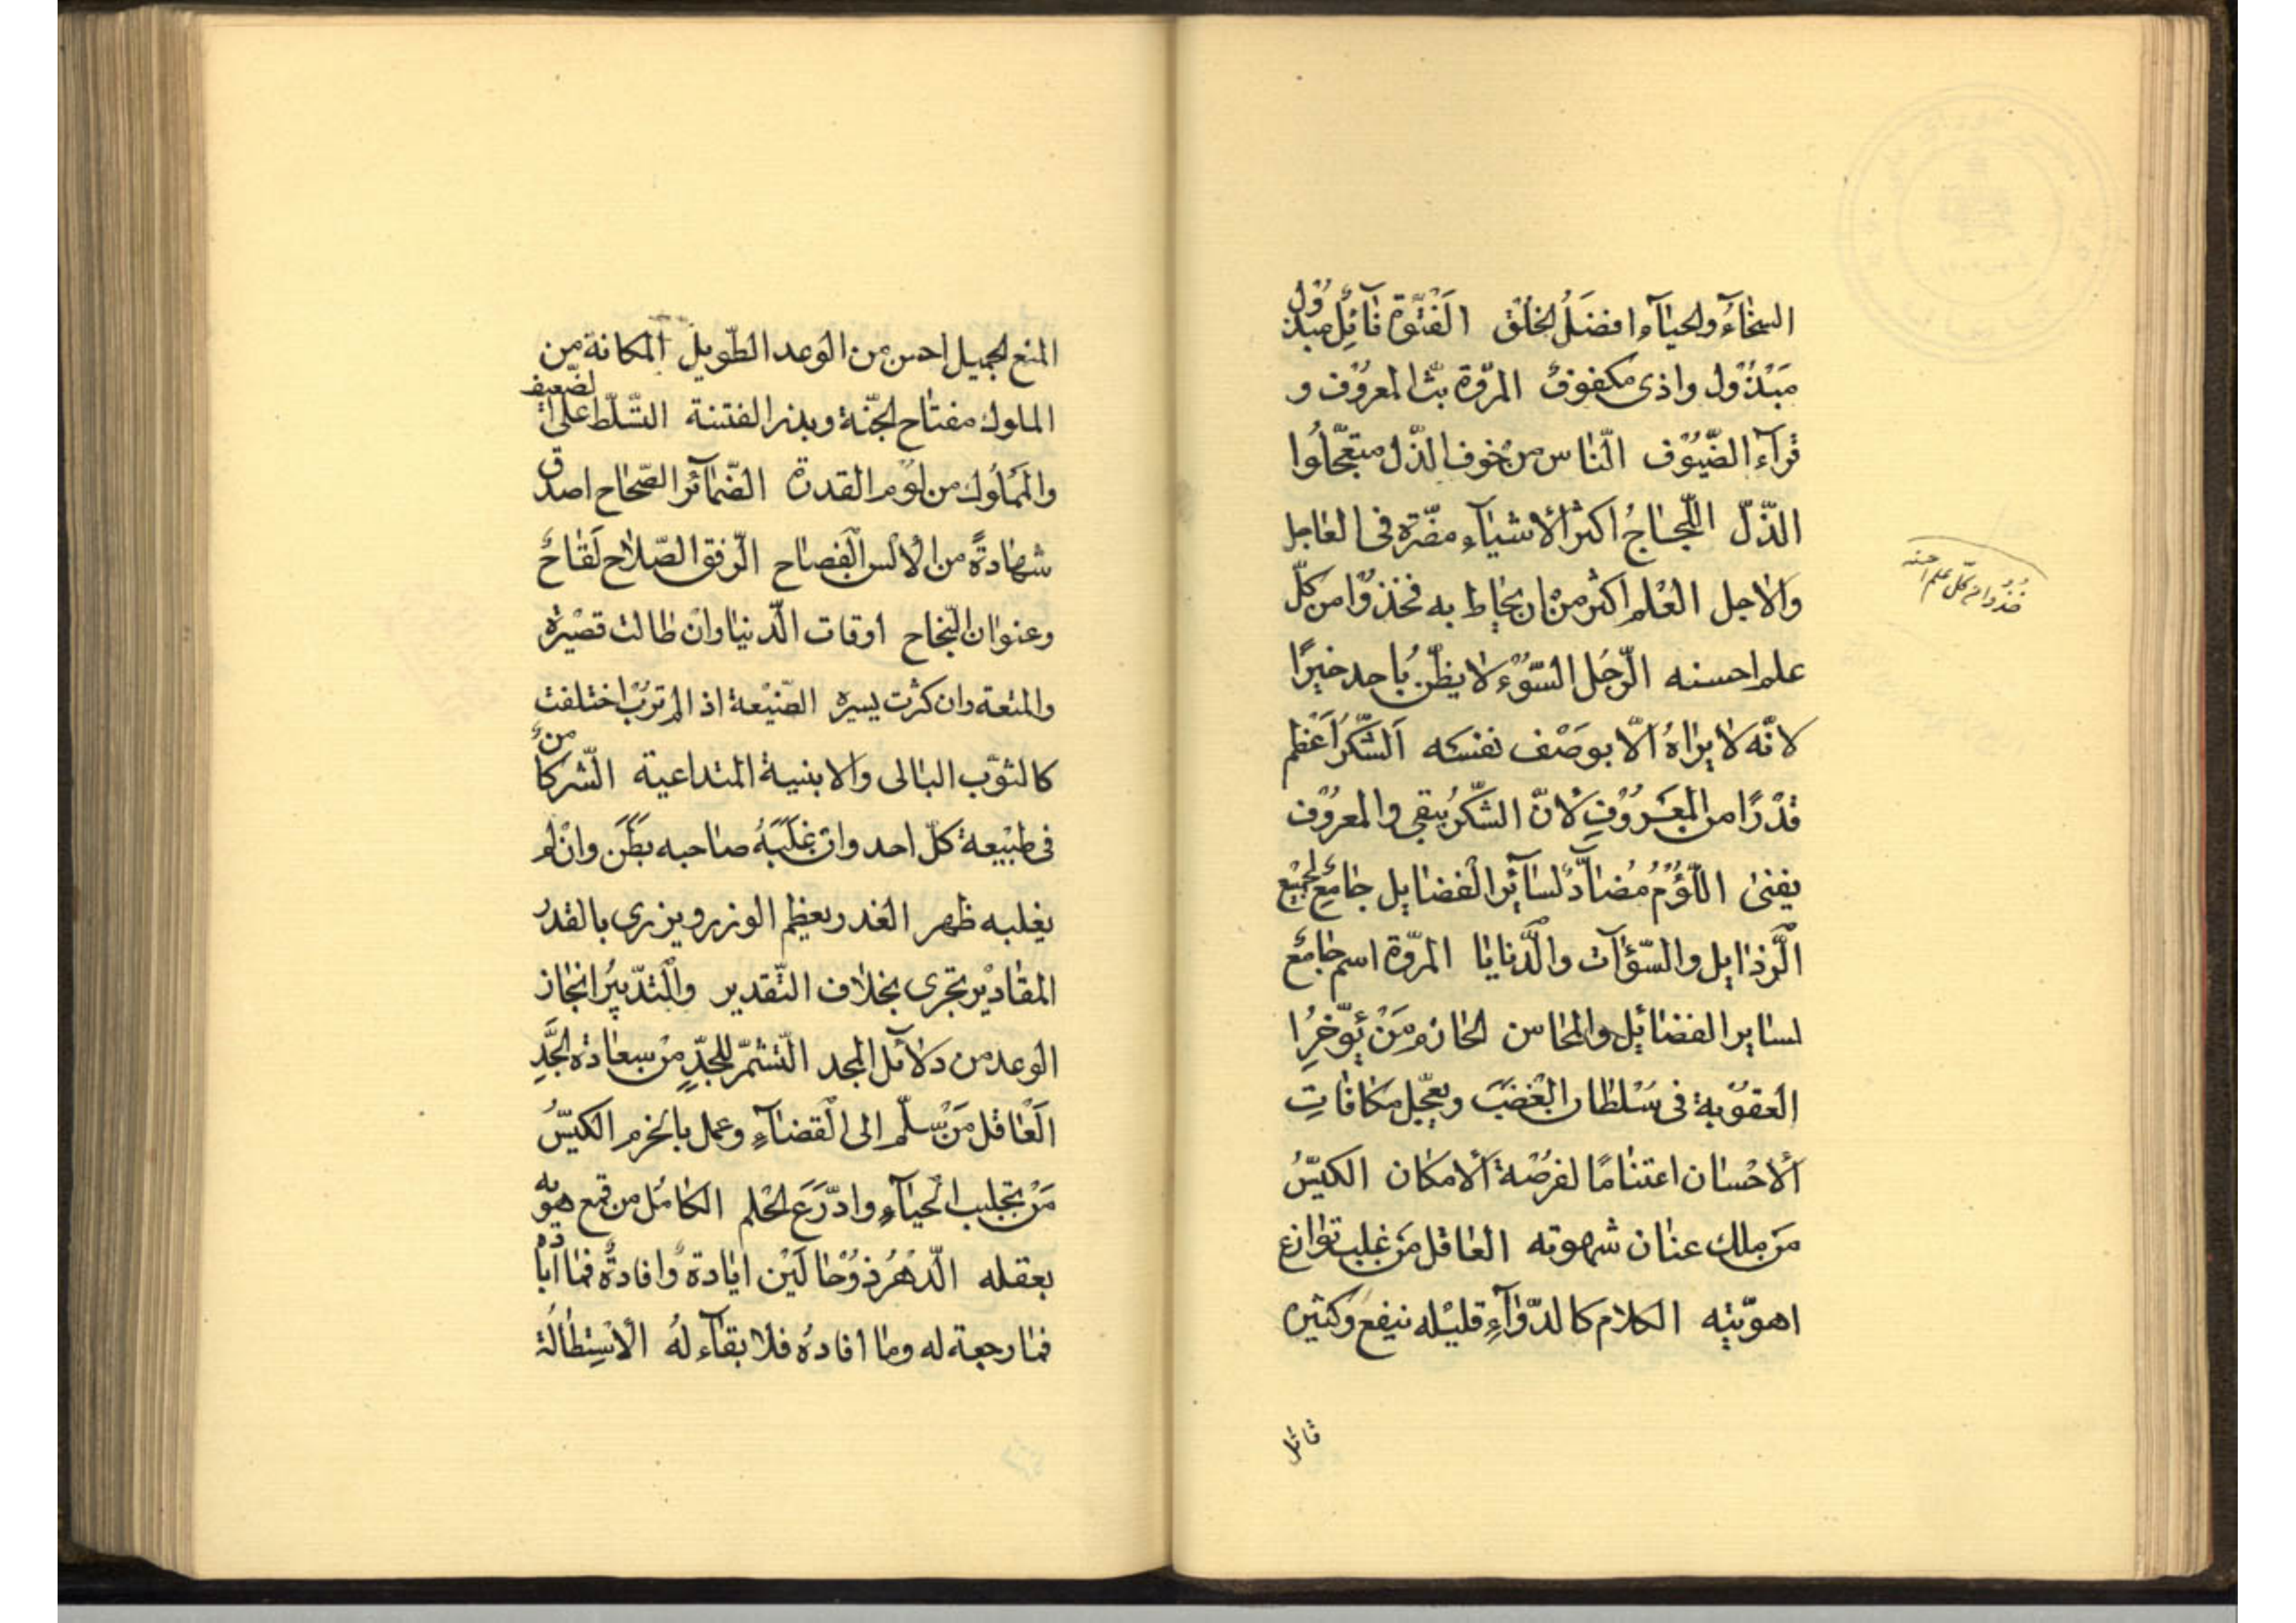 السخآء والحيآء افضل الخلق الفتوّة نآئل مبذول
مبذول واذى مكفوف المروّة بثّ المعروف و
قرآء الضّيوف النّاس من خوف الذّل متعجّلوا
الذّلّ اللّجاج اكثر الأشيآء مضرّة فى العاجل
والاجل العلم اكثر من ان يحاط به فخذوا من كلّ
علم احسنه الرّجل السّوء لا يظنّ باحد خيرًا
لانّه لا يراه الّا بوصف نفسه الشّكر اعظم
قدرًا من المعروف لانّ الشّكر يبقى والمعروف
يفنى اللّؤم مضآدّ لسآئر الفضايل جامع لجميع
الرّذايل والسّوآت والدّنايا المروّة اسم جامع
لساير الفضائل والمحاسن الحازم من يؤخّر
العقوبة فى سلطان الغضب ويعجّل مكافات
الاحسان اغتنامًا لفرصة الامكان الكيّس
من ملك عنان شهوته العاقل من غلب نوازع
اهويّته الكلام كالدّوآء قليله ينفع وكثيره
قاتل
خذوا من كلّ علم احسنه
المنع الجميل احسن من الوعد الطّويل المكانة من
الملوك مفتاح الجنّة وبذر الفتنة التّسلّط على الضّعيف
والمملوك من لؤم القدرة الضّمآئر الصّحاح اصدق
شهادةً من الالسن الفصاح الرّفق الصّلاح لقاح
وعنوان النّجاح اوقات الدّنيا وان طالت قصيرة
والمتعة وان كثرت يسيره الصّنيعة اذ الم تربّ اختلفت
كالثوب البالى والابنية المتداعية الشّر كامن
فى طبيعة كلّ احد وان غلبه صاحبه بطن وان لم
يغلبه ظهر الغدر يعظم الوزر ويزرى بالقدر
المقادير تجرى بخلاف التّقدير والتّدبير انجاز
الوعد من دلآئل المجد التّشمّر للجدّ من سعادة الجدّ
العاقل من سلّم الى القضآء وعمل بالحزم الكيّس
من تجلبب الحيآء وادّرع الحلم الكامل من قمع هويه
بعقله الدّهر ذو حالين ابادة وافادة فما اباده
فما رجعة له وما افاده فلا بقآء له الاستطالة